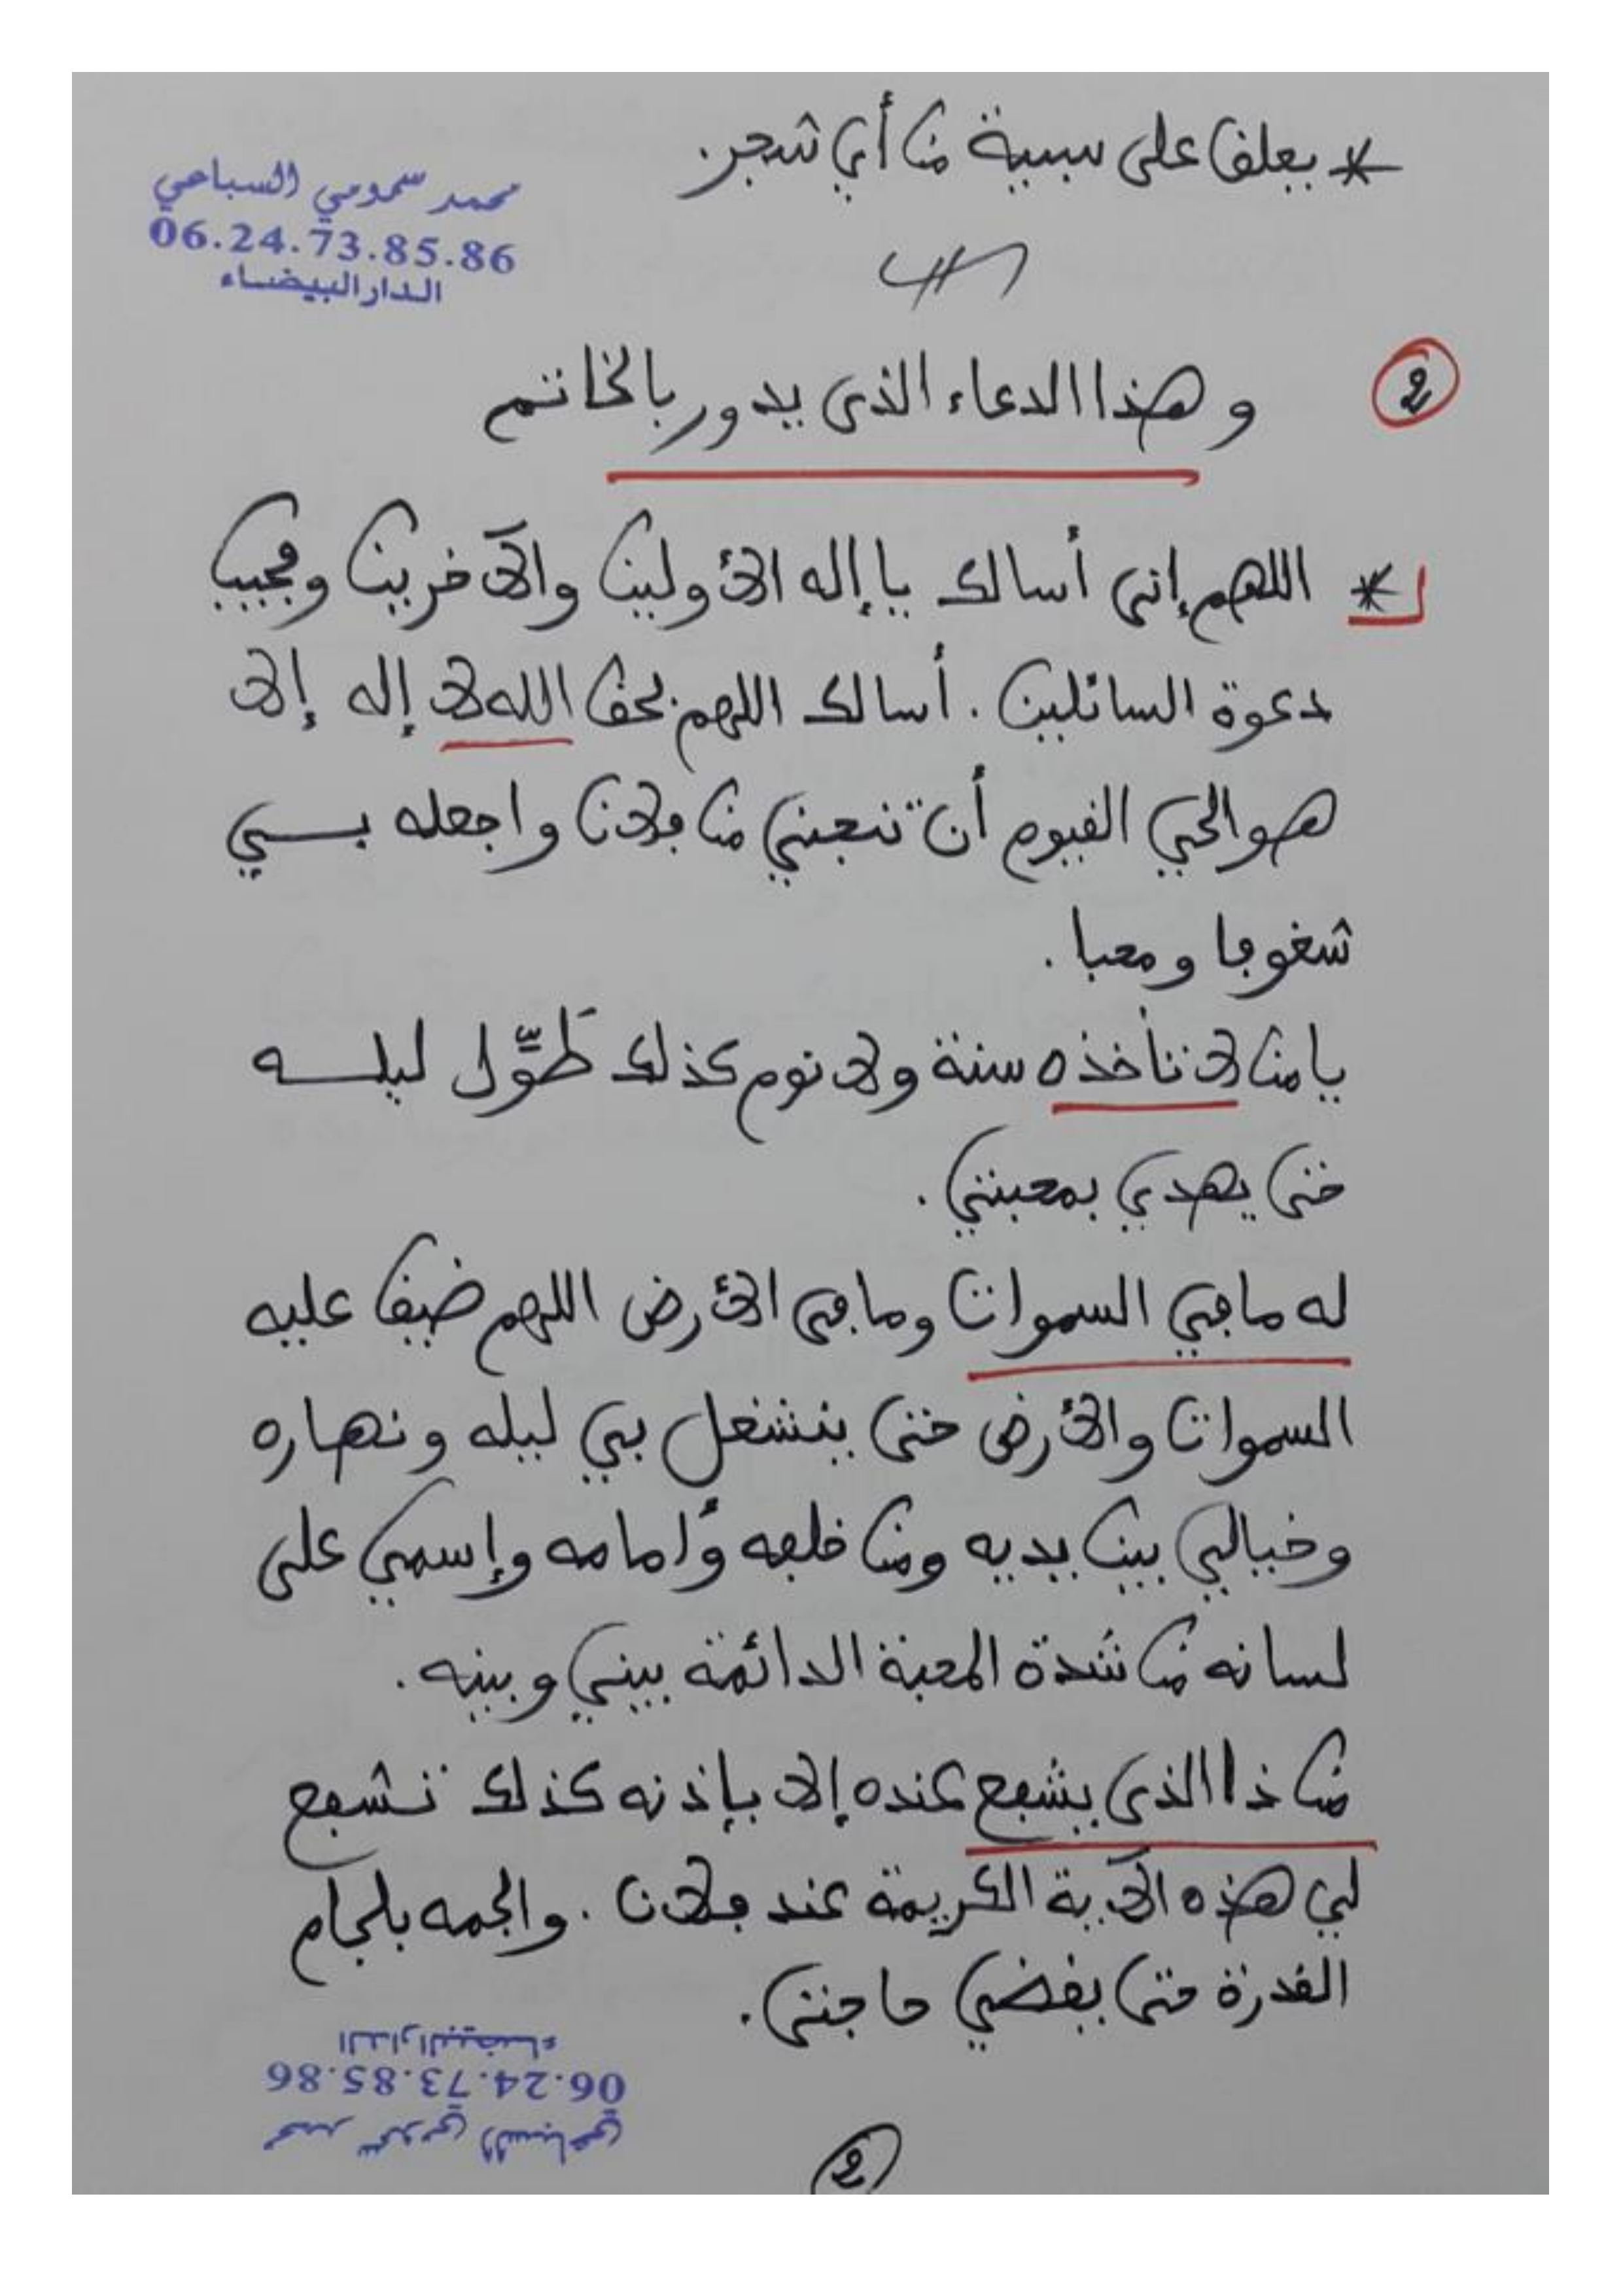 * يعلق على سبيبة من أي شجر.
محمد سمومي السباعي
06.24.73.85.86
الدار البيضاء
2 وهذا الدعاء الذى يدور بالخاتم
* اللهم إنى أسالك ياإله الأولين والآخرين ومجيب
دعوة السائلين . أسالك اللهم بحق الله لا إله إلا
هو الحي القيوم أن تنجني من فلان واجعله بــي
شغوفا ومحبا .
يامن لا تأخذه سنة ولا نوم كذلك طَوِّل ليله
ختى يهدي بمحبتي .
له مافي السموات ومافى الأرض اللهم ضيق عليه
السموات والأرض ختى ينشغل بي ليله ونهاره
وخيالي بين يديه ومن خلفه وأمامه وإسمي على
لسانه من شدة المحبة الدائمة بيني وبينه .
من ذا الذى يشفع عنده إلا بإذنه كذلك تشفع
لي هذه الآية الكريمة عند فلان . والجمه بلجام
القدرة حتى يقضي حاجتى .
محمد سمومي السباعي
06.24.73.85.86
الدار البيضاء
2